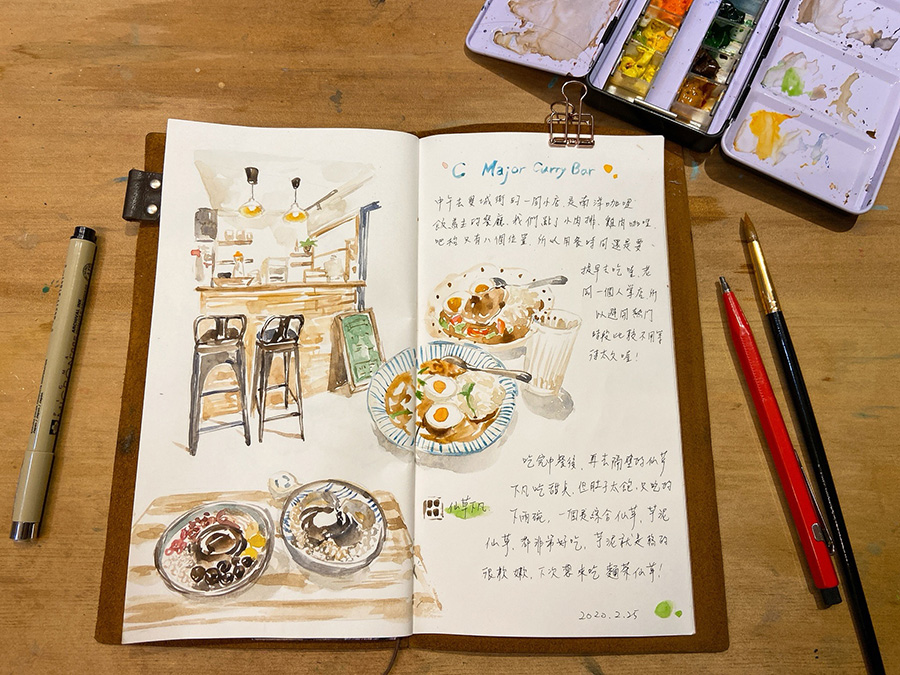 C Major Curry Bar
中午去復城街的一間小店,是南洋咖哩
飲為主的餐廳,我們點了小肉排、雞肉咖哩
吧檯只有八個位置,所以用餐時間還是要
提早去吃喔,老
闆一個人掌店,所
以避開熱門
時段比較不用等
待太久喔!
吃完中餐後,再去隔壁的仙草
下凡吃甜點,但肚子太飽,只吃的
下兩碗,一個是綜合仙草、芋泥
仙草,都非常好吃,芋泥就是
很軟嫩,下次要來吃麵茶仙草!
仙草下凡
2020.2.25